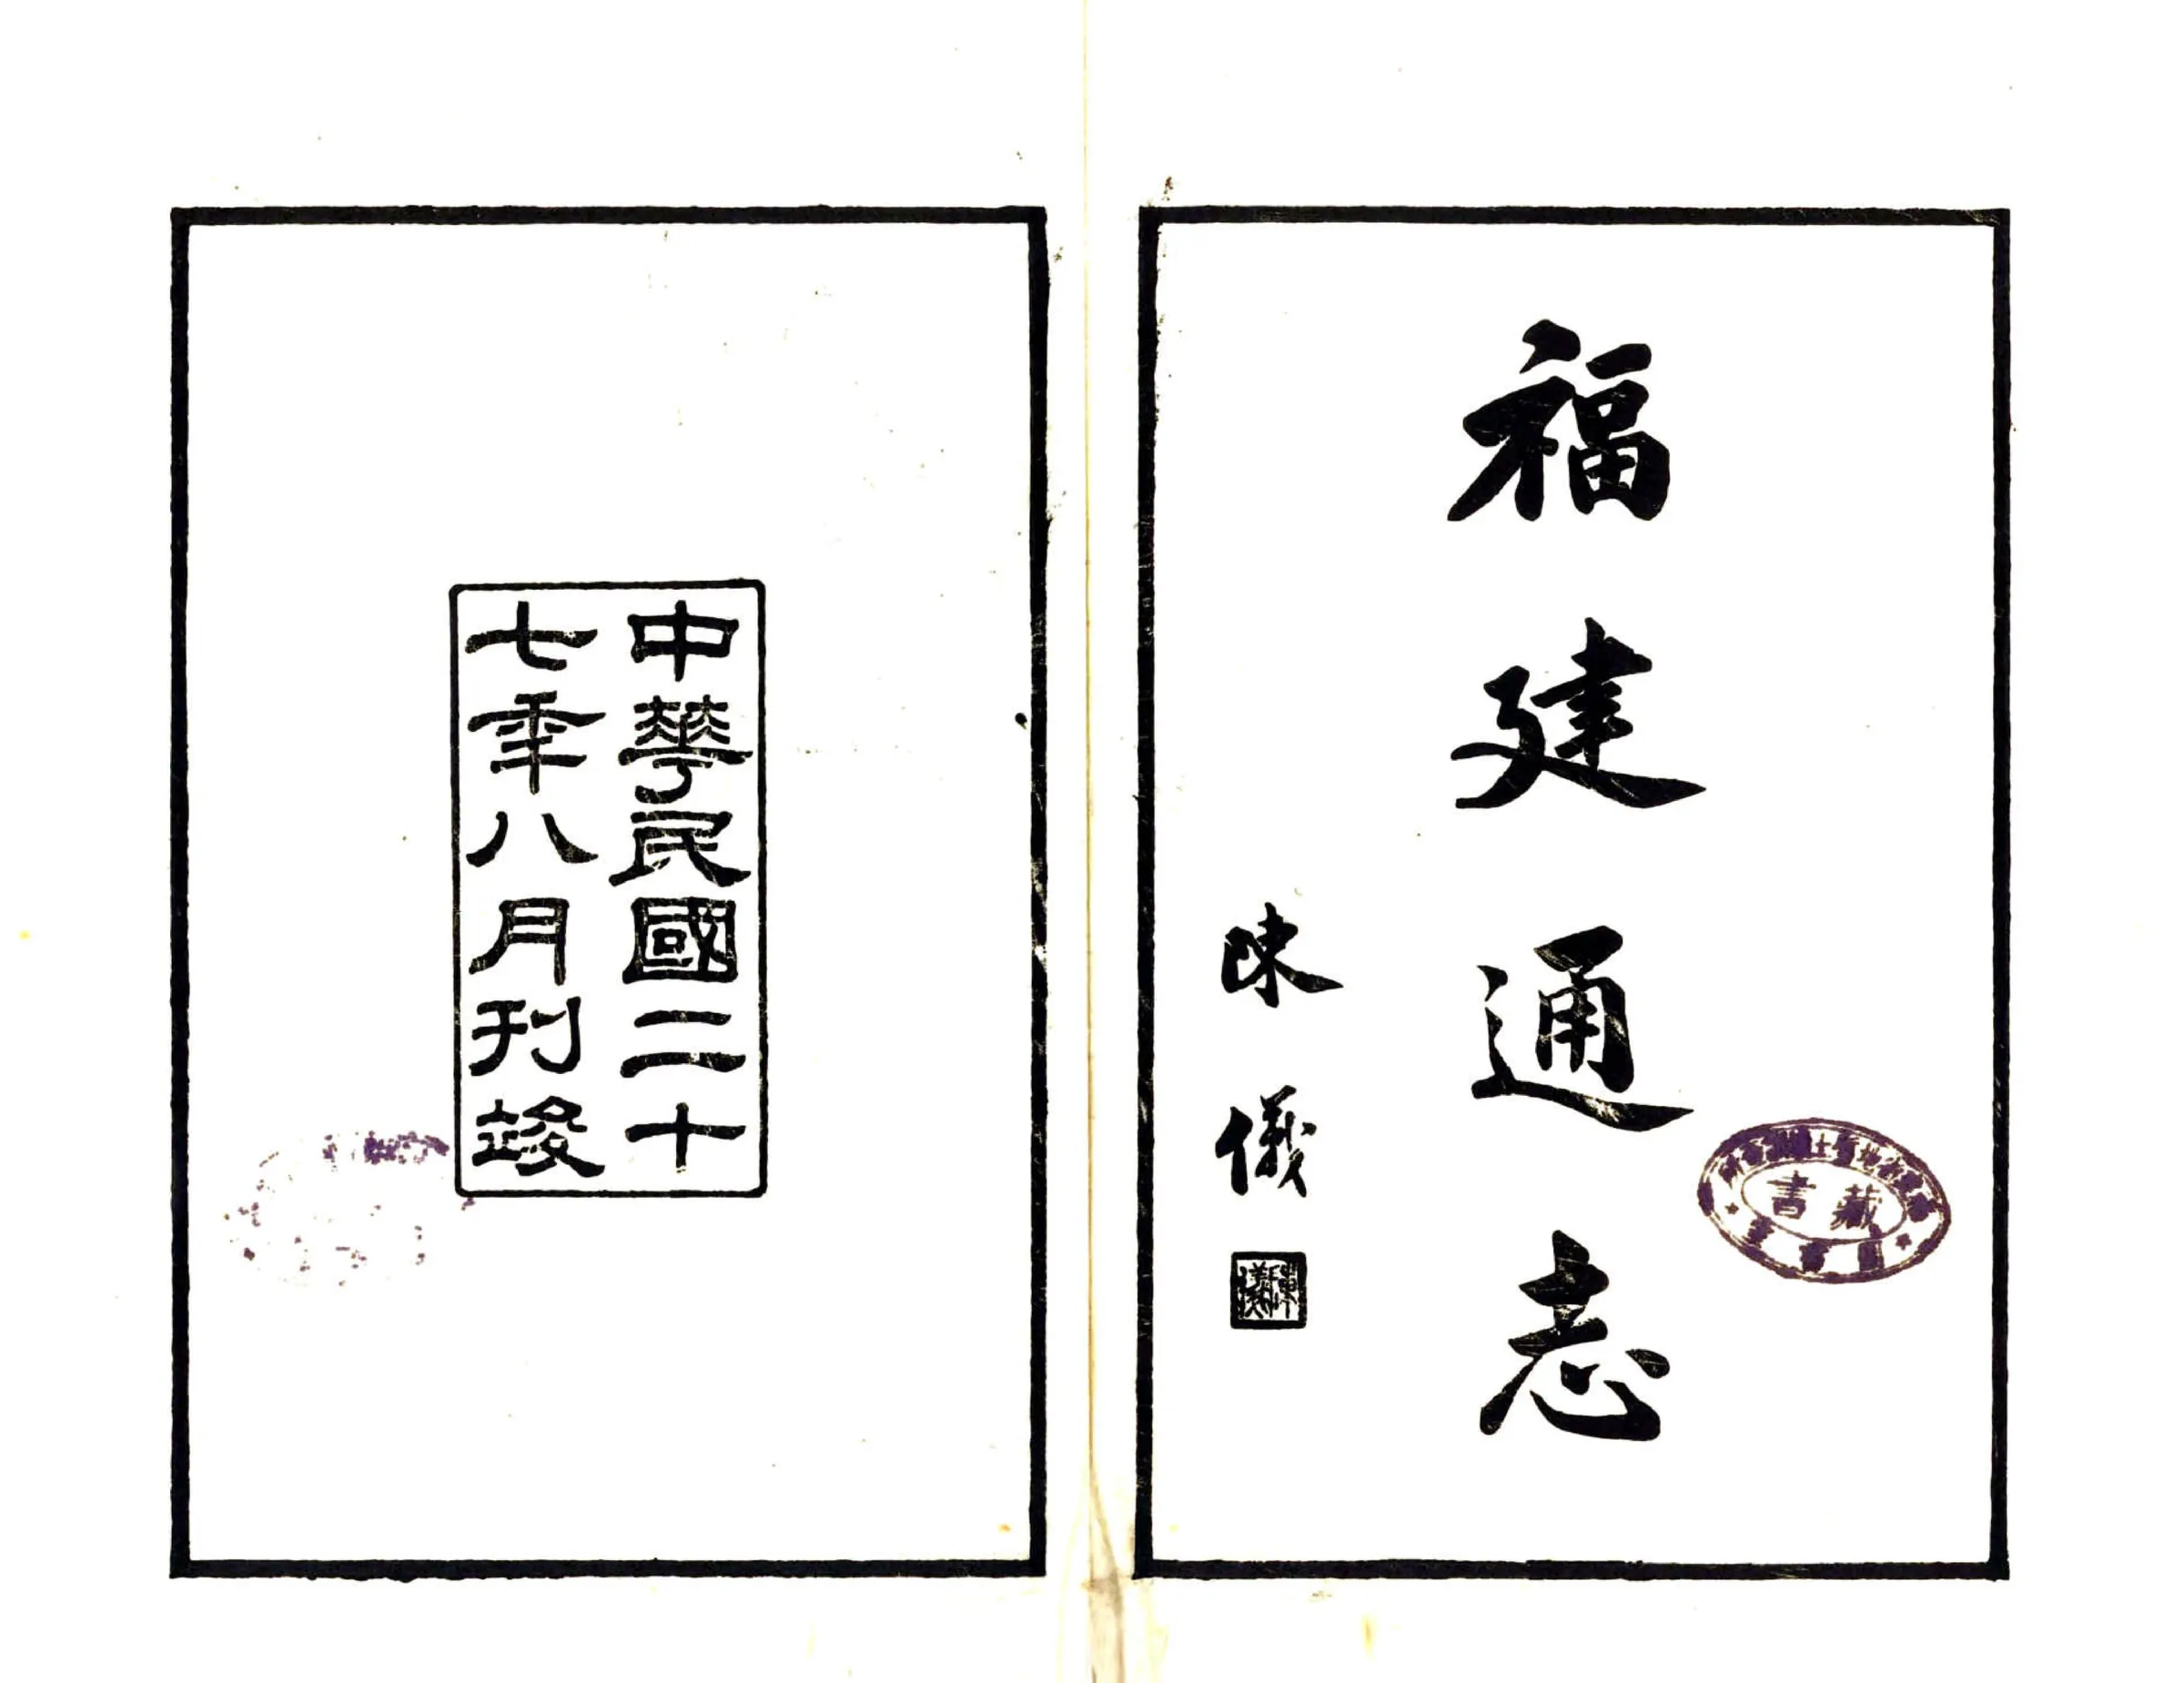 福建通志
陳儀
陳儀
藏書
中華民國二十
七年八月刊竣